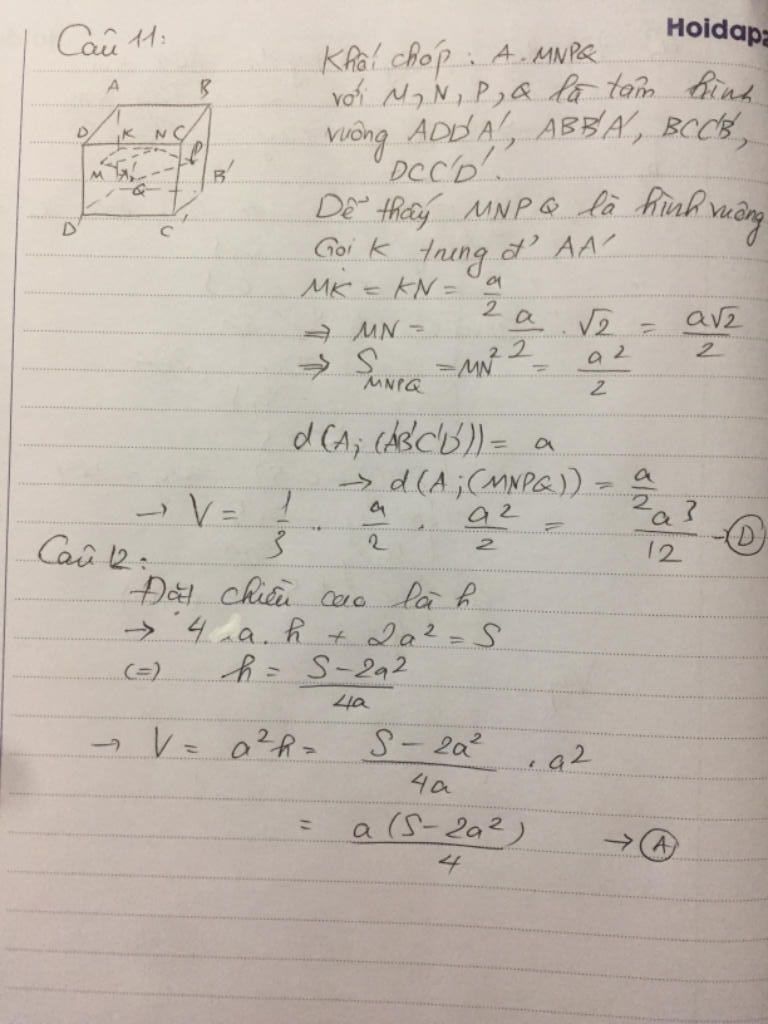 Hoidapa
Câu 11:
A B
D K N C P
M A' Q B'
D' C'
Khối chóp: A.MNPQ
với M, N, P, Q là tâm hình
vuông ADD'A', ABB'A', BCC'B',
DCC'D'.
Dễ thấy MNPQ là hình vuông
Gọi K trung đ' AA'
MK = KN = a/2
=> MN = a/2 . √2 = a√2/2
=> S_MNPQ = MN² = a²/2
d(A; (A'B'C'D')) = a
→ d(A; (MNPQ)) = a/2
→ V = 1/3 . a/2 . a²/2 = a³/12 → D
Câu 12:
Đặt chiều cao là h
→ 4.a.h + 2a² = S
(=) h = (S - 2a²)/4a
→ V = a²h = (S - 2a²)/4a . a²
= a(S - 2a²)/4 → A